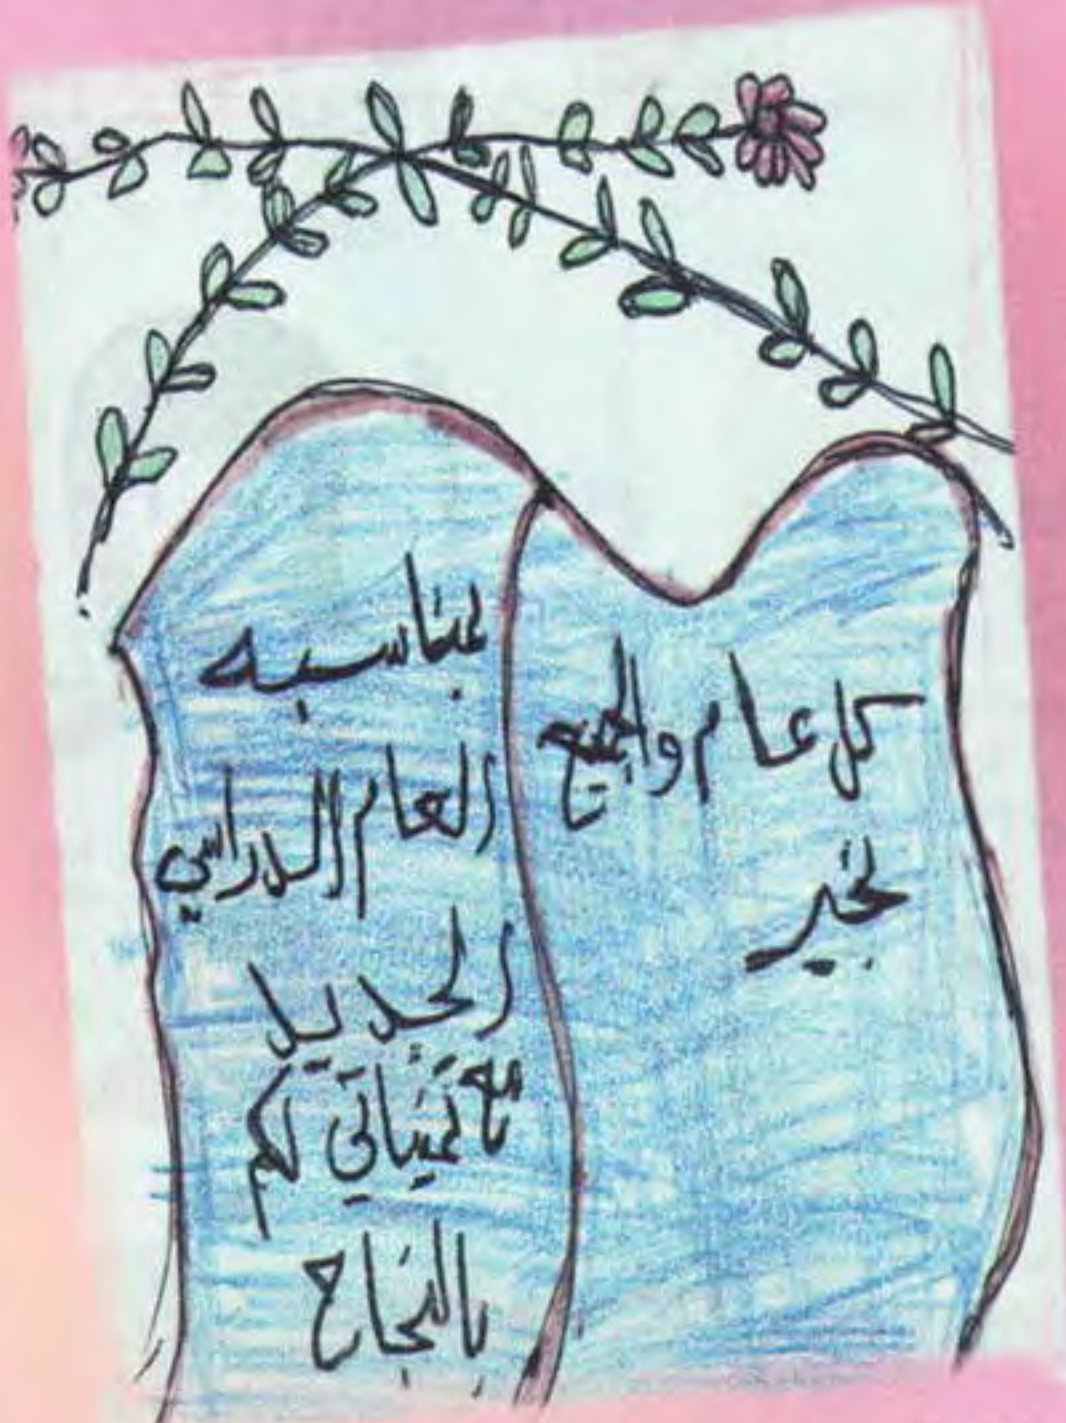 كل عام والجميع
بخير
بمناسبه
العام الدراسي
الجديد
مع تمنياتي لكم
بالنجاح